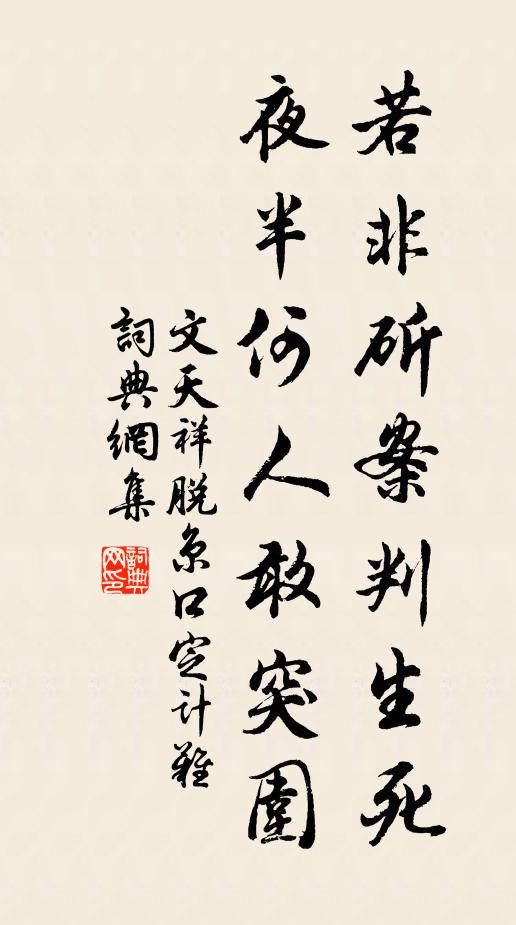 若非斫案判生死
夜半何人敢突圍
文天祥脱京口定計難
詞典網集
詞典网印